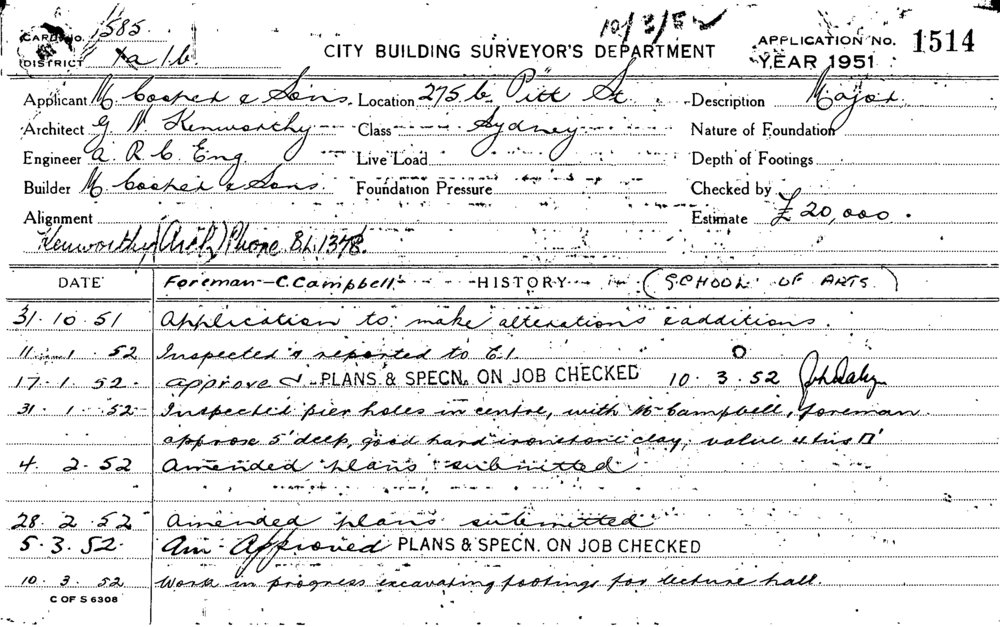 10/3/52
CARD NO. 1585
DISTRICT
CITY BUILDING SURVEYOR'S DEPARTMENT
APPLICATION NO. 1514
YEAR 1951
Applicant M. Cooper & Sons. Location 275 b Pitt St Description Major
Architect G N Kenworthy Class Sydney Nature of Foundation
Engineer A. R. C. Eng. Live Load Depth of Footings
Builder M. Cooper & Sons. Foundation Pressure Checked by
Alignment Estimate £20,000.
Kenworthy (Arch) Phone BL. 1378.
DATE Foreman - C. Campbell HISTORY (SCHOOL OF ARTS)
31. 10. 51 Application to make alterations & additions.
11 1. 52 Inspected & reported to E.I.
17. 1. 52. approved PLANS & SPECN. ON JOB CHECKED 10. 3. 52
31. 1. 52. Inspected pier holes in centre, with Mr Campbell, foreman.
approx 5' deep, good hard ironstone clay, value 4
4. 2. 52 Amended plans submitted
28. 2. 52 Amended plans submitted
5. 3. 52. Am. Approved PLANS & SPECN. ON JOB CHECKED
10. 3. 52. Work in progress excavating footings for lecture hall.
C OF S 6308